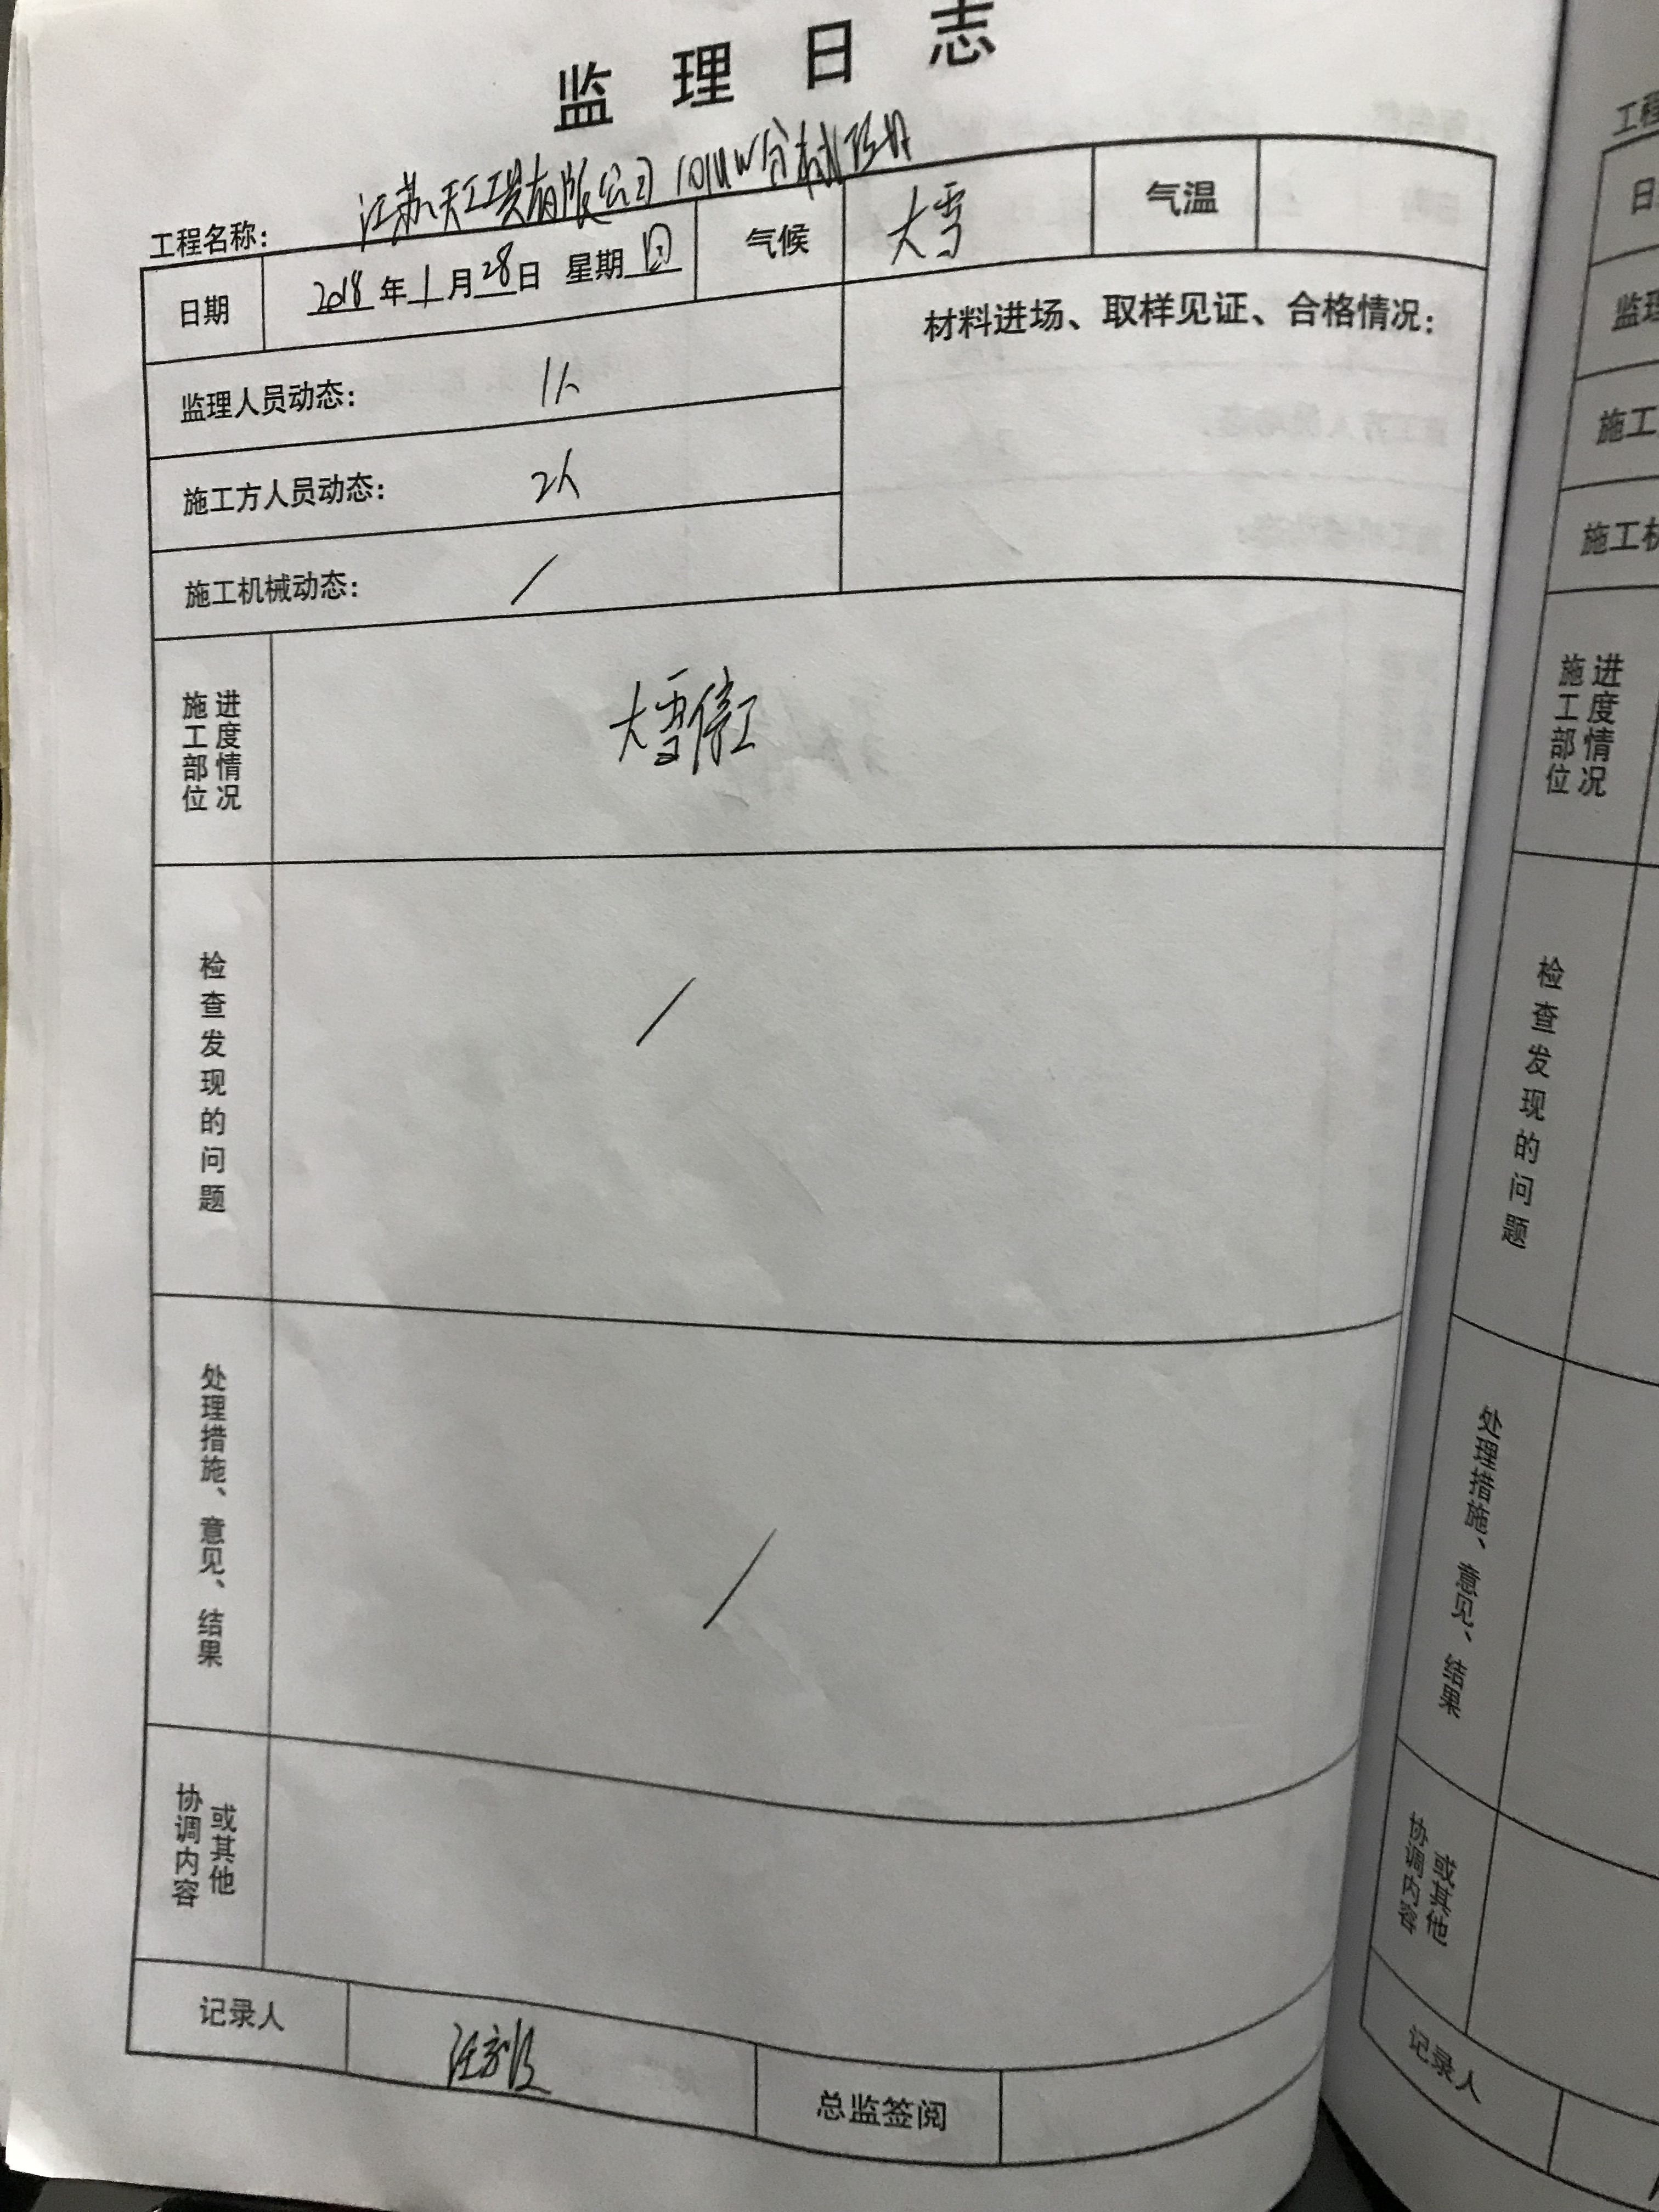 监理日志
工程名称: 江苏天工工具有限公司10MW分布式项目
日期 2018年1月28日 星期日 气候 大雪 气温
监理人员动态: 1人
材料进场、取样见证、合格情况:
施工方人员动态: 2人
施工机械动态: /
施工部位
进度情况
大雪停工
检查发现的问题 /
处理措施、意见、结果 /
协调内容
或其他
记录人
总监签阅
工程
日
监理
施工
施工机
施工部位
进度情况
检查发现的问题
处理措施、意见、结果
协调内容
或其他
记录人